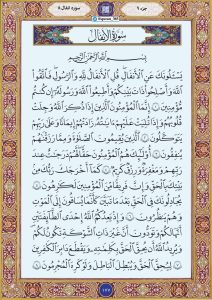 جزء ۹
سوره انفال ۸
سُورَةُ الأَنفَالِ
بِسْمِ اللَّهِ الرَّحْمَٰنِ الرَّحِيمِ
يَسْـَٔلُونَكَ عَنِ ٱلْأَنفَالِ قُلِ ٱلْأَنفَالُ لِلَّهِ وَٱلرَّسُولِ فَٱتَّقُوا۟
ٱللَّهَ وَأَصْلِحُوا۟ ذَاتَ بَيْنِكُمْ وَأَطِيعُوا۟ ٱللَّهَ وَرَسُولَهُۥٓ إِن كُنتُم
مُّؤْمِنِينَ ۝١ إِنَّمَا ٱلْمُؤْمِنُونَ ٱلَّذِينَ إِذَا ذُكِرَ ٱللَّهُ وَجِلَتْ
قُلُوبُهُمْ وَإِذَا تُلِيَتْ عَلَيْهِمْ ءَايَٰتُهُۥ زَادَتْهُمْ إِيمَٰنًا وَعَلَىٰ رَبِّهِمْ
يَتَوَكَّلُونَ ۝٢ ٱلَّذِينَ يُقِيمُونَ ٱلصَّلَوٰةَ وَمِمَّا رَزَقْنَٰهُمْ
يُنفِقُونَ ۝٣ أُو۟لَٰٓئِكَ هُمُ ٱلْمُؤْمِنُونَ حَقًّا لَّهُمْ دَرَجَٰتٌ عِندَ
رَبِّهِمْ وَمَغْفِرَةٌ وَرِزْقٌ كَرِيمٌ ۝٤ كَمَآ أَخْرَجَكَ رَبُّكَ مِنۢ
بَيْتِكَ بِٱلْحَقِّ وَإِنَّ فَرِيقًا مِّنَ ٱلْمُؤْمِنِينَ لَكَٰرِهُونَ ۝٥
يُجَٰدِلُونَكَ فِى ٱلْحَقِّ بَعْدَمَا تَبَيَّنَ كَأَنَّمَا يُسَاقُونَ إِلَى ٱلْمَوْتِ
وَهُمْ يَنظُرُونَ ۝٦ وَإِذْ يَعِدُكُمُ ٱللَّهُ إِحْدَى ٱلطَّآئِفَتَيْنِ
أَنَّهَا لَكُمْ وَتَوَدُّونَ أَنَّ غَيْرَ ذَاتِ ٱلشَّوْكَةِ تَكُونُ لَكُمْ
وَيُرِيدُ ٱللَّهُ أَن يُحِقَّ ٱلْحَقَّ بِكَلِمَٰتِهِۦ وَيَقْطَعَ دَابِرَ ٱلْكَٰفِرِينَ
۝٧ لِيُحِقَّ ٱلْحَقَّ وَيُبْطِلَ ٱلْبَٰطِلَ وَلَوْ كَرِهَ ٱلْمُجْرِمُونَ ۝٨
۱۷۷